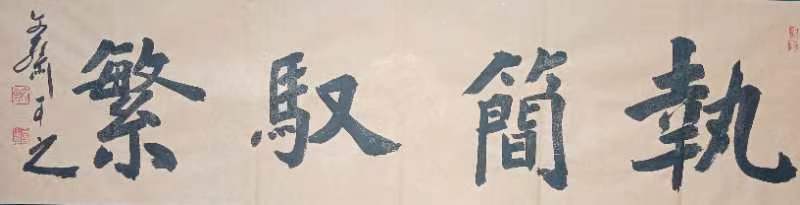 執簡馭繁